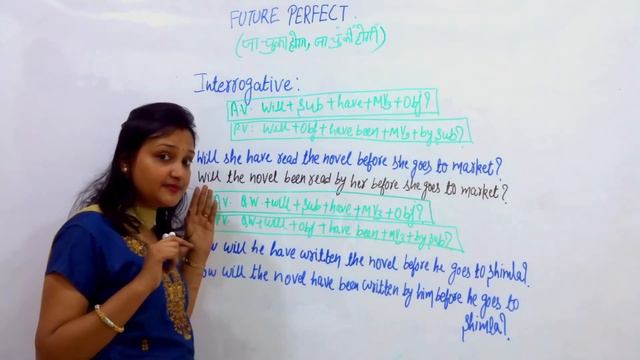 FUTURE PERFECT.
(जा चुका होगा, जा चुकी होगी)
Interrogative:
AV: Will + Sub + have + MV3 + Obj?
PV: Will + Obj + have been + MV3 + by sub?
Will she have read the novel before she goes to market?
Will the novel been read by her before she goes to market?
AV: QW + will + Sub + have + MV3 + Obj?
PV: QW + will + Obj + have been + MV3 + by sub?
will he have written the novel before he goes to Shimla?
will the novel have been written by him before he goes to
Shimla?